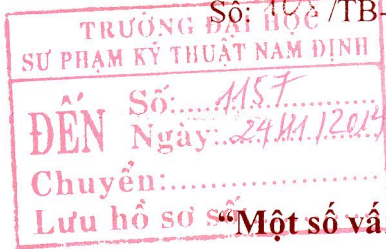 Số: /TB-
TRƯỜNG ĐẠI HỌC
SƯ PHẠM KỸ THUẬT NAM ĐỊNH
Số:.....1157..........
ĐẾN Ngày:..24/11/2014
Chuyển:..................
Lưu hồ sơ số
“Một số vấ